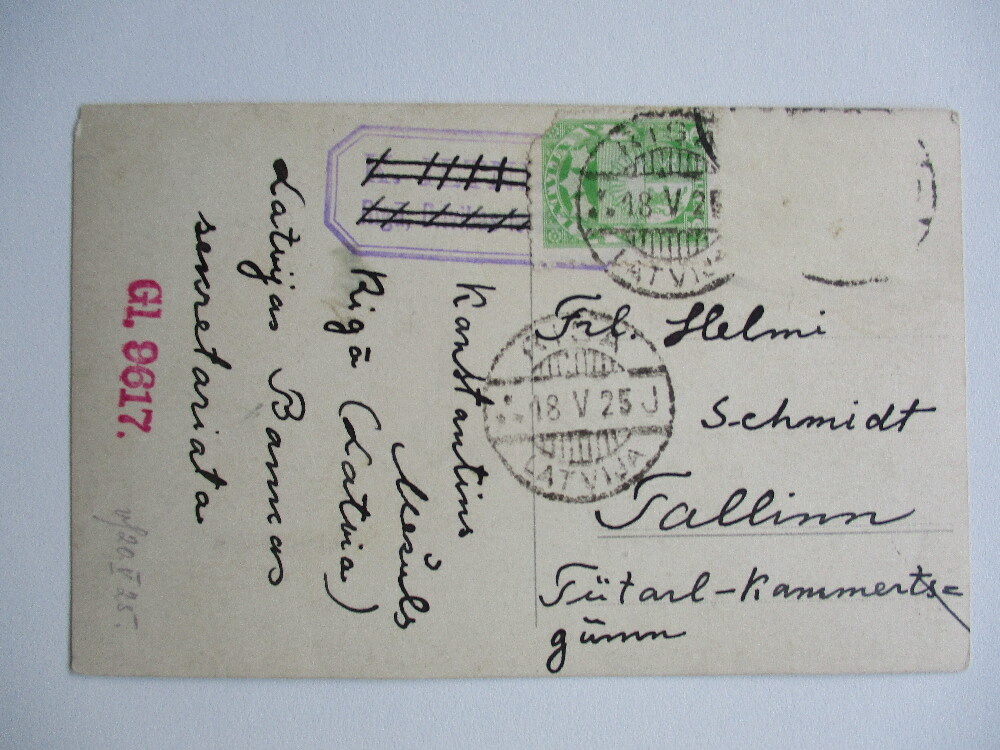 Frl. Helmi
Schmidt
Tallinn
Tütarl-Kammerts=
gümn
Konstantins
Mežuls
Rīgā (Latvia)
Latvijas Bankas
sekretariata
GL 9617.
18 V 25
LATVIJA
18 V 25 J
LATVIJA
v/20.V 25.